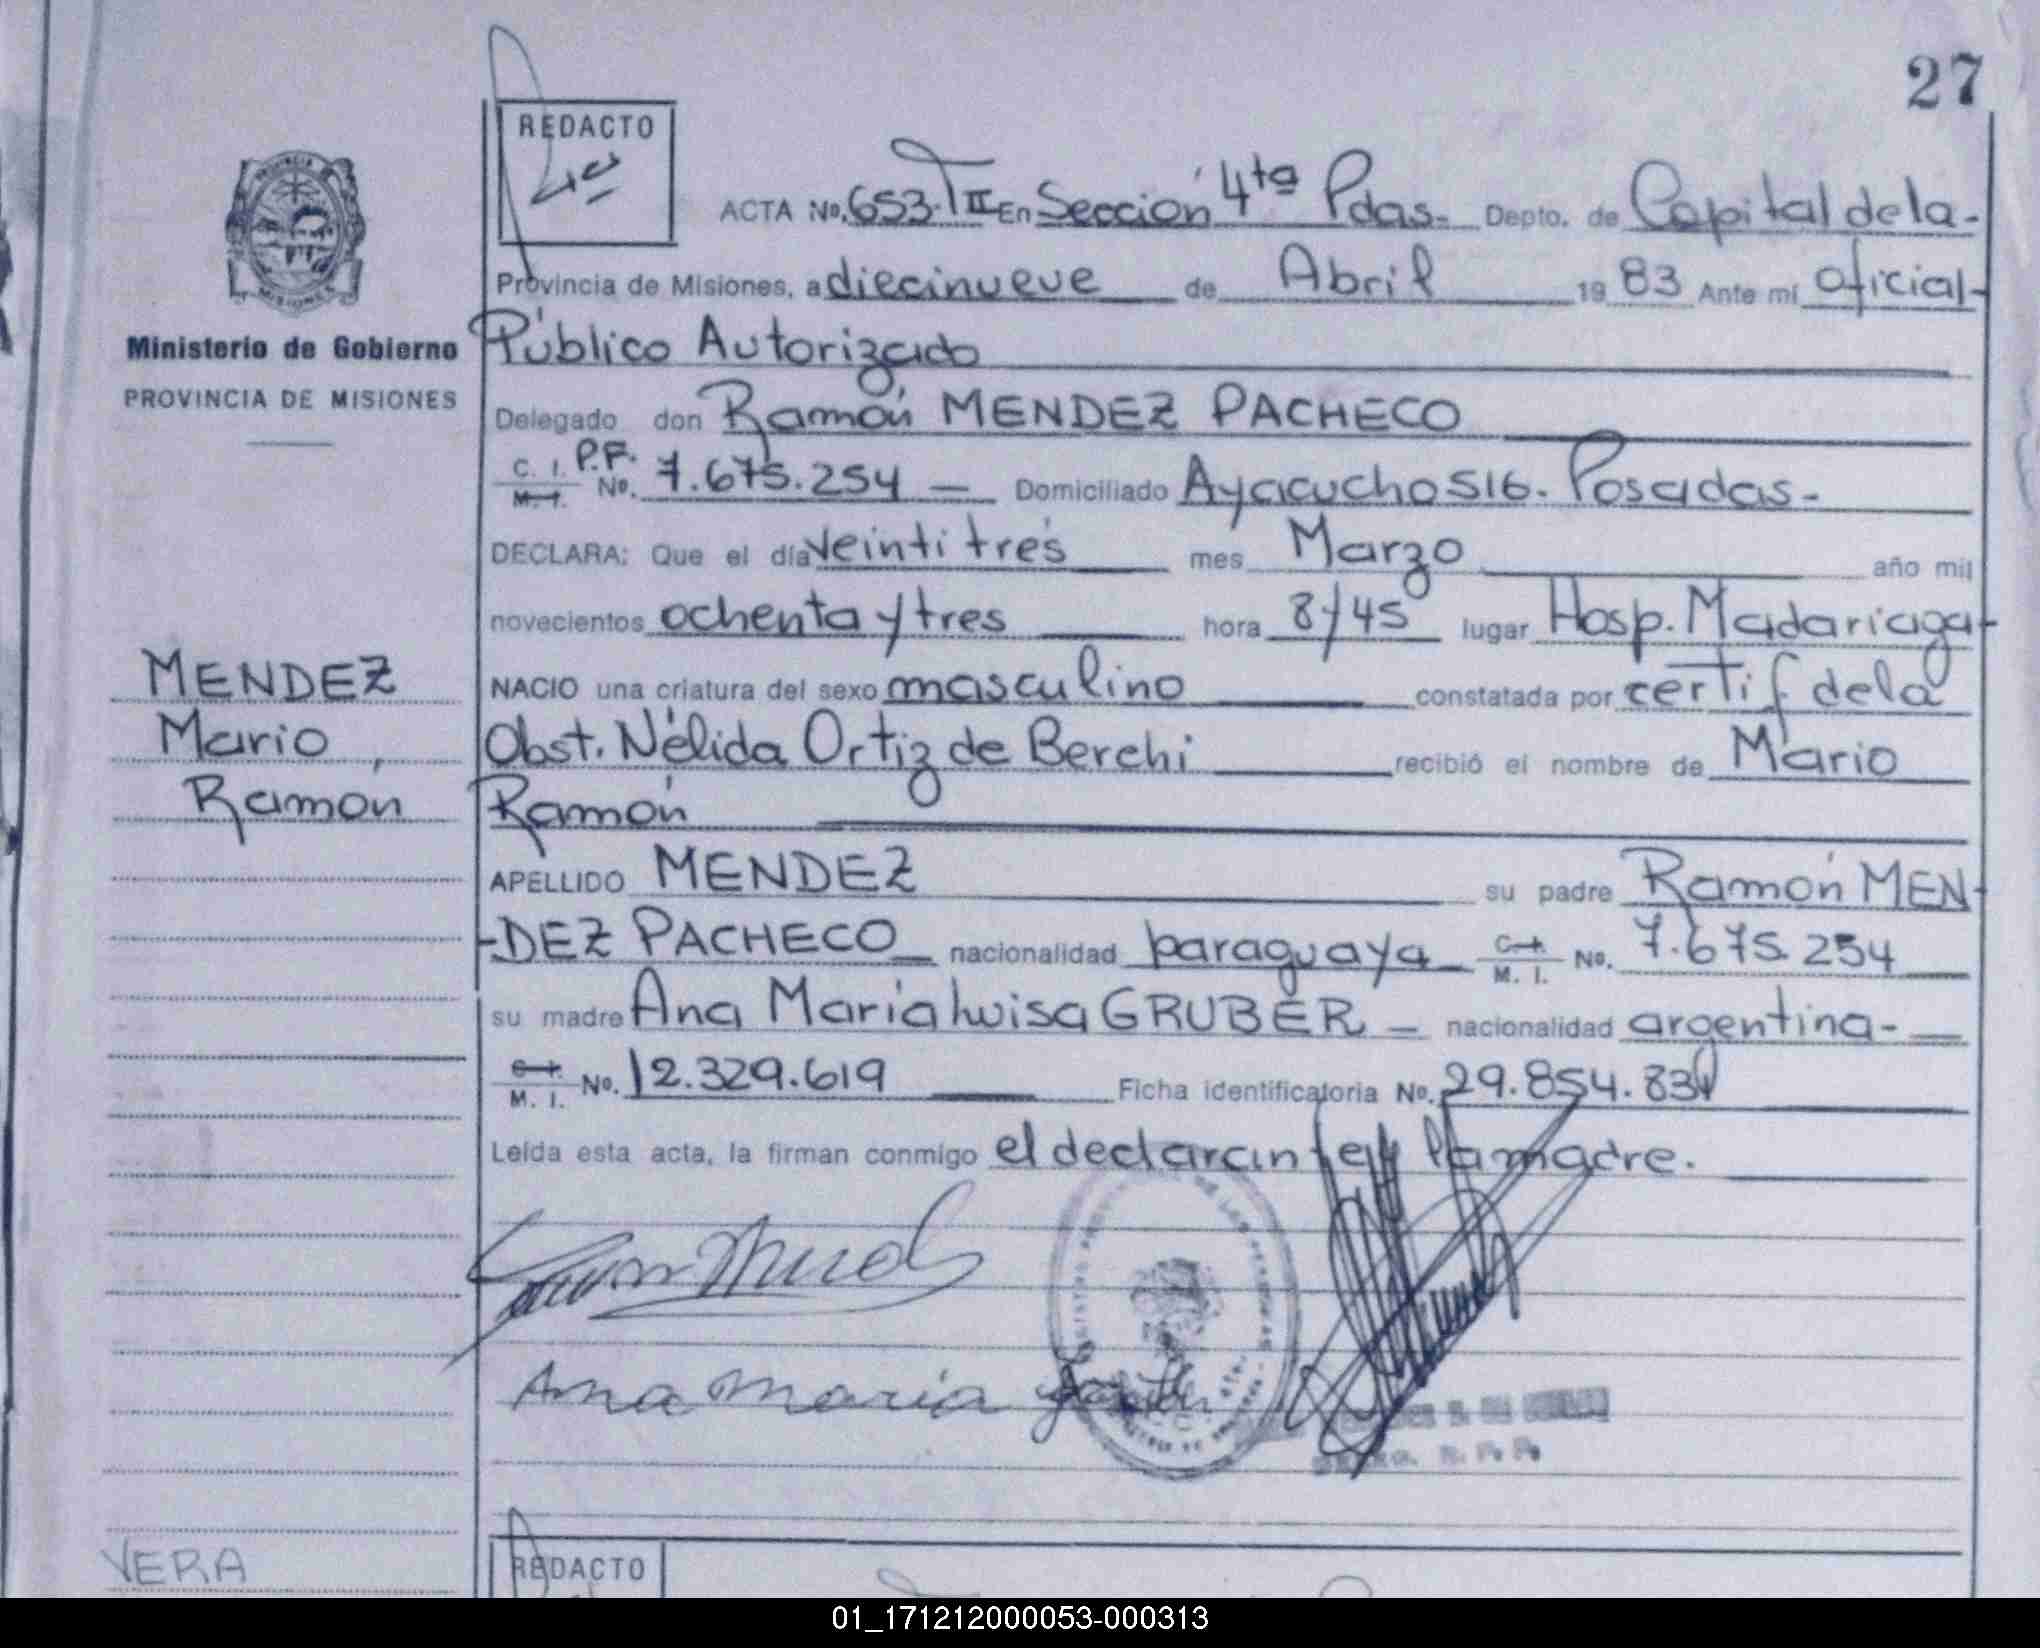 27
REDACTO
ACTA No. 653. T II En Sección 4ta Pdas.- Depto. de Capital de la-
Provincia de Misiones, a diecinueve de Abril 1983 Ante mí oficial-
Público Autorizado
Delegado don Ramón MENDEZ PACHECO
C. I. P.F.
M. I. No. 7.675.254 — Domiciliado Ayacucho 516. Posadas-
DECLARA: Que el día veintitrés mes Marzo año mil
novecientos ochenta y tres hora 8 y 45 lugar Hosp. Madariaga-
NACIO una criatura del sexo masculino constatada por certif de la
Obst. Nélida Ortiz de Berchi recibió el nombre de Mario
Ramón
APELLIDO MENDEZ su padre Ramón MEN-
-DEZ PACHECO nacionalidad paraguaya C. I. M. I. No. 7.675.254
su madre Ana María Luisa GRUBER — nacionalidad argentina-
C. I. M. I. No. 12.329.619 Ficha identificatoria No. 29.854.834
Leída esta acta, la firman conmigo el declarante y la madre.
Ana Maria
PROVINCIA
MISIONES
Ministerio de Gobierno
PROVINCIA DE MISIONES
MENDEZ
Mario
Ramón
VERA
REDACTO
01_171212000053-000313